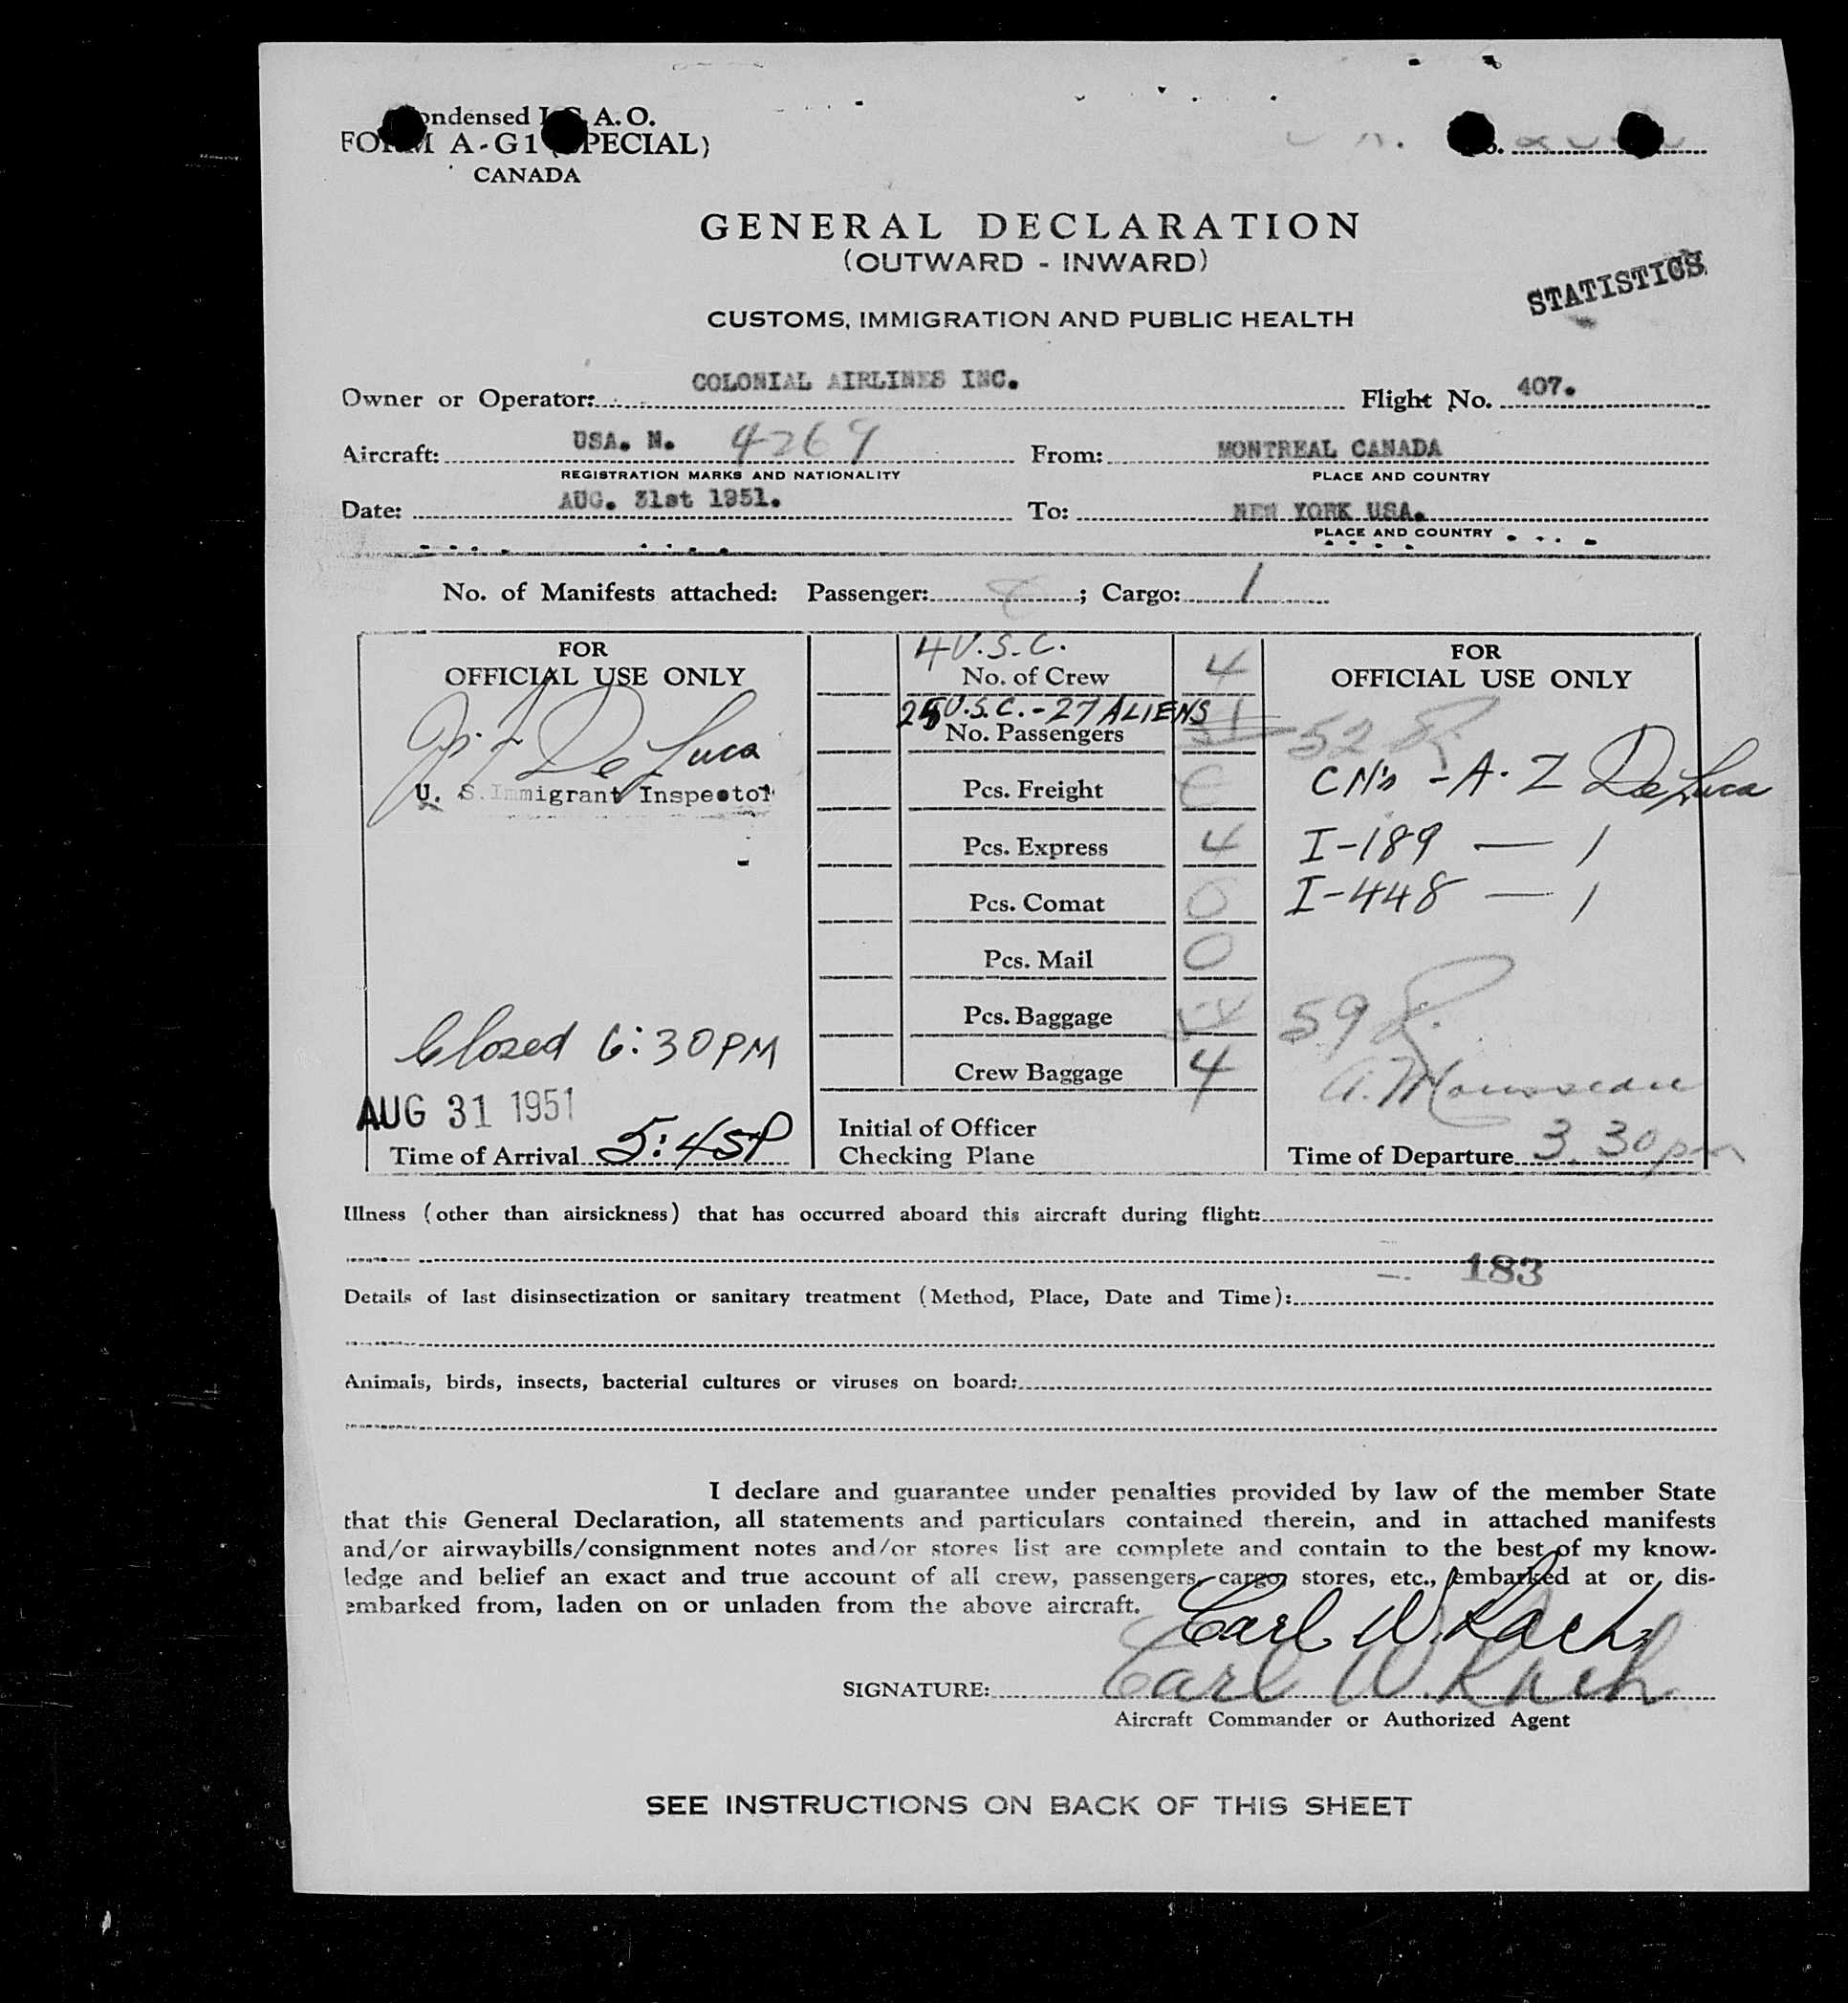 Condensed I.C.A.O.
FORM A-G1 (SPECIAL)
CANADA
GENERAL DECLARATION
(OUTWARD - INWARD)
STATISTICS
CUSTOMS, IMMIGRATION AND PUBLIC HEALTH
Owner or Operator: COLONIAL AIRLINES INC. Flight No. 407.
Aircraft: USA. N. 4269 From: MONTREAL CANADA
REGISTRATION MARKS AND NATIONALITY PLACE AND COUNTRY
Date: AUG. 31st 1951. To: NEW YORK USA.
PLACE AND COUNTRY
No. of Manifests attached: Passenger: ; Cargo: 1
FOR
OFFICIAL USE ONLY
De Luca
U. S. Immigrant Inspector
Closed 6:30 PM
AUG 31 1951
Time of Arrival 5:45P
4 U.S.C.
No. of Crew 4
25 U.S.C. - 27 ALIENS
No. Passengers
Pcs. Freight
Pcs. Express 4
Pcs. Comat 0
Pcs. Mail 0
Pcs. Baggage
Crew Baggage 4
Initial of Officer
Checking Plane
FOR
OFFICIAL USE ONLY
52
CN's - A. Z De Luca
I-189 — 1
I-448 — 1
59
A. Mousseau
Time of Departure 3.30pm
Illness (other than airsickness) that has occurred aboard this aircraft during flight:
183
Details of last disinsectization or sanitary treatment (Method, Place, Date and Time):
Animals, birds, insects, bacterial cultures or viruses on board:
I declare and guarantee under penalties provided by law of the member State
that this General Declaration, all statements and particulars contained therein, and in attached manifests
and/or airwaybills/consignment notes and/or stores list are complete and contain to the best of my know-
ledge and belief an exact and true account of all crew, passengers, cargo, stores, etc., embarked at or dis-
embarked from, laden on or unladen from the above aircraft.
Carl W. Kach
SIGNATURE: Carl W. Kach
Aircraft Commander or Authorized Agent
SEE INSTRUCTIONS ON BACK OF THIS SHEET